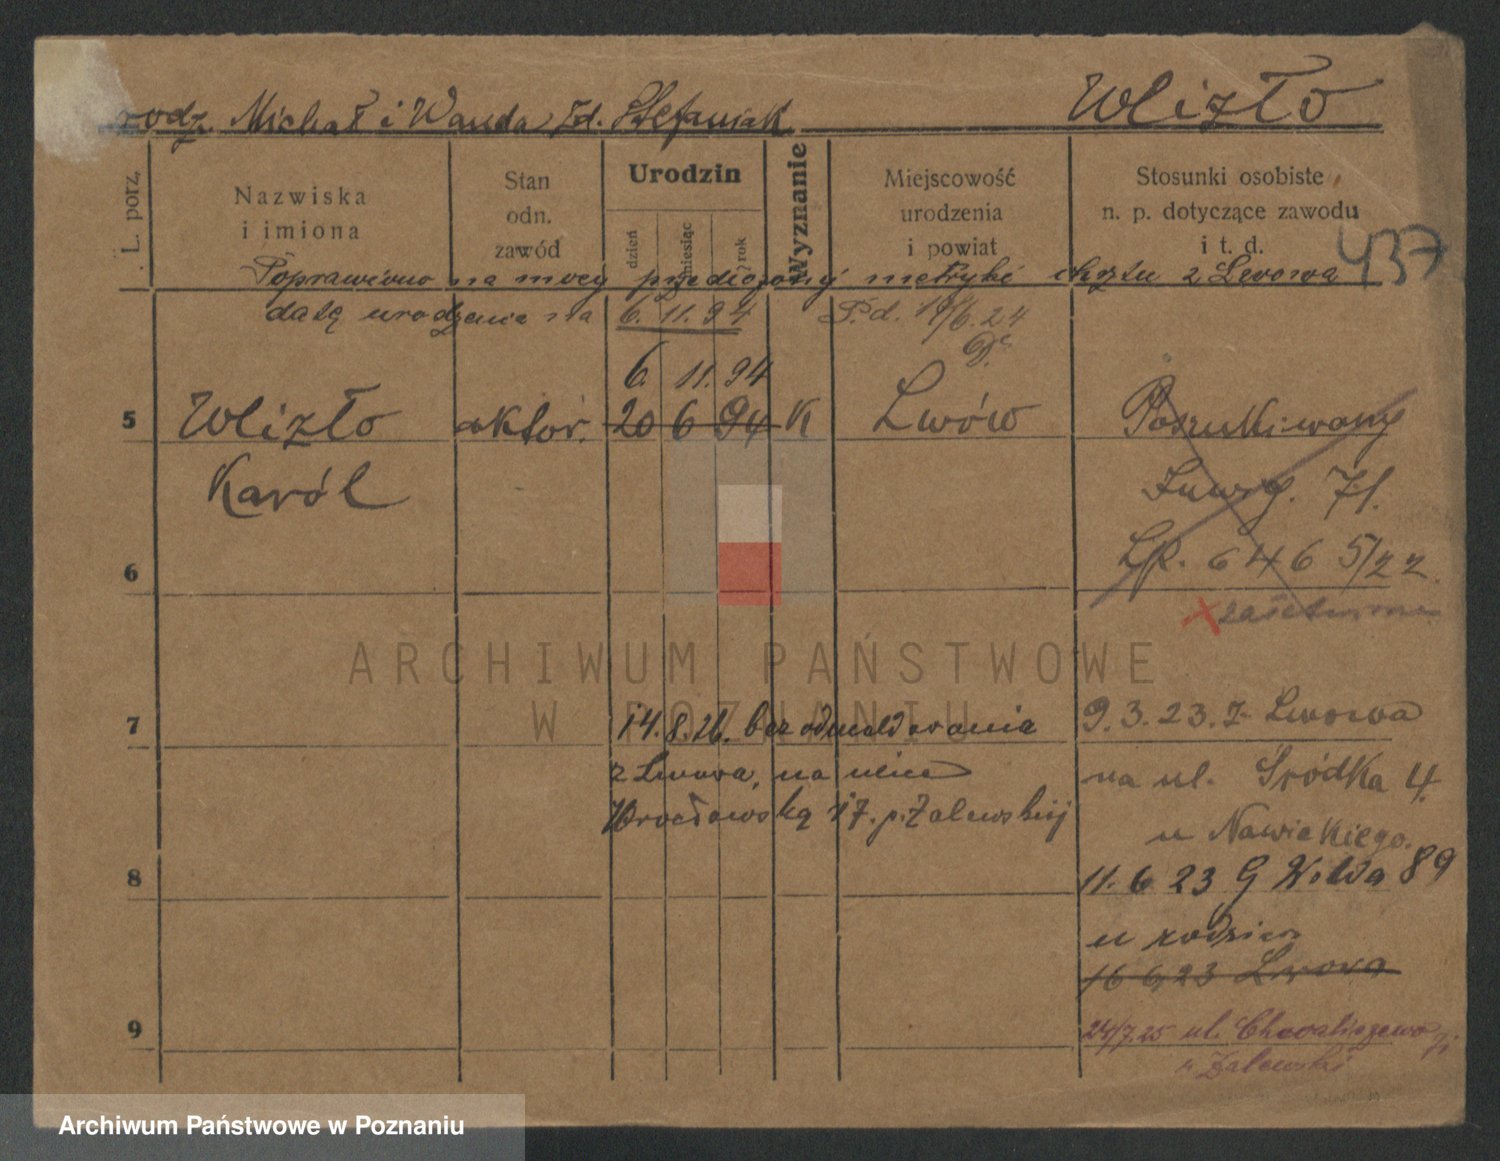 rodz. Michał i Wanda zd. Stefaniak
Wlizło
L. porz.
Nazwiska
i imiona
Stan
odn.
zawód
Urodzin
dzień
miesiąc
rok
Wyznanie
Miejscowość
urodzenia
i powiat
Stosunki osobiste
n. p. dotyczące zawodu
i t. d.
437
Poprawiono na mocy przedłożonej metryki chrztu z Lwowa
datę urodzenia na 6. 11. 94 P.d. 19/6.24
6. 11. 94
5 Wlizło aktor. 20 6 94 K Lwów Poszukiwany
Karól
71.
6
646 5/22.
X
7
14.8.26. bez odmeldowania
z Lwowa, na ulice
Wrocławską 17. p. Zalewskiej
9.3.23. z Lwowa
na ul. Śródka 4.
u Nawickiego.
8
11. 6 23 G Wilda 89
u rodzicow
16 6 23 Lwowa
9
24/7.25 ul. Chwaliszewo
u Zalewski
ARCHIWUM PAŃSTWOWE
W POZNANIU
Archiwum Państwowe w Poznaniu